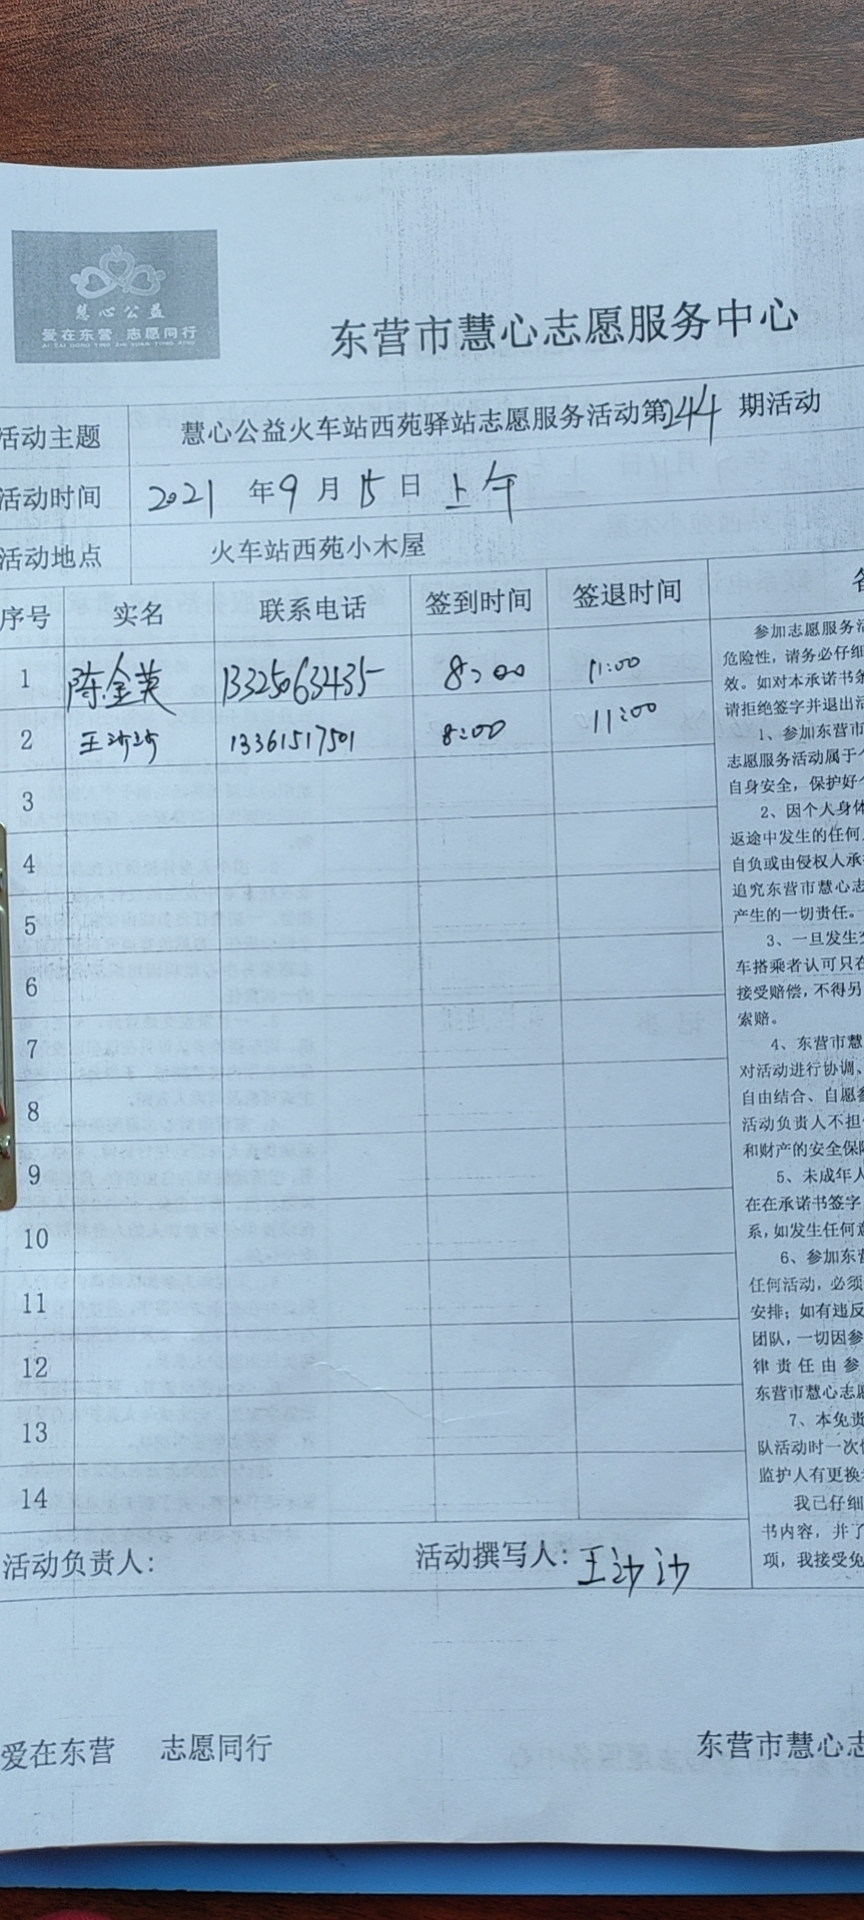 慧心公益
爱在东营 志愿同行
AI ZAI DONG YING ZHI YUAN TONG XING
东营市慧心志愿服务中心
活动主题 慧心公益火车站西苑驿站志愿服务活动第244期活动
活动时间 2021 年 9 月 15 日 上午
活动地点 火车站西苑小木屋
序号 实名 联系电话 签到时间 签退时间
1 陈金英 13325063435 8:00 11:00
2 王沙沙 13361517501 8:00 11:00
3
4
5
6
7
8
9
10
11
12
13
14
参加志愿服务活
危险性，请务必仔细
效。如对本承诺书条
请拒绝签字并退出活
1、参加东营市
志愿服务活动属于个
自身安全，保护好个
2、因个人身体
返途中发生的任何
自负或由侵权人承
追究东营市慧心志
产生的一切责任。
3、一旦发生交
车搭乘者认可只在
接受赔偿，不得另
索赔。
4、东营市慧
对活动进行协调、
自由结合、自愿参
活动负责人不担
和财产的安全保
5、未成年人
在在承诺书签字
系，如发生任何意
6、参加东营
任何活动，必须
安排；如有违反
团队，一切因参
律责任由参
东营市慧心志愿
7、本免责
队活动时一次
监护人有更换
我已仔细
书内容，并了
项，我接受免
活动负责人： 活动撰写人：王沙沙
爱在东营 志愿同行 东营市慧心志